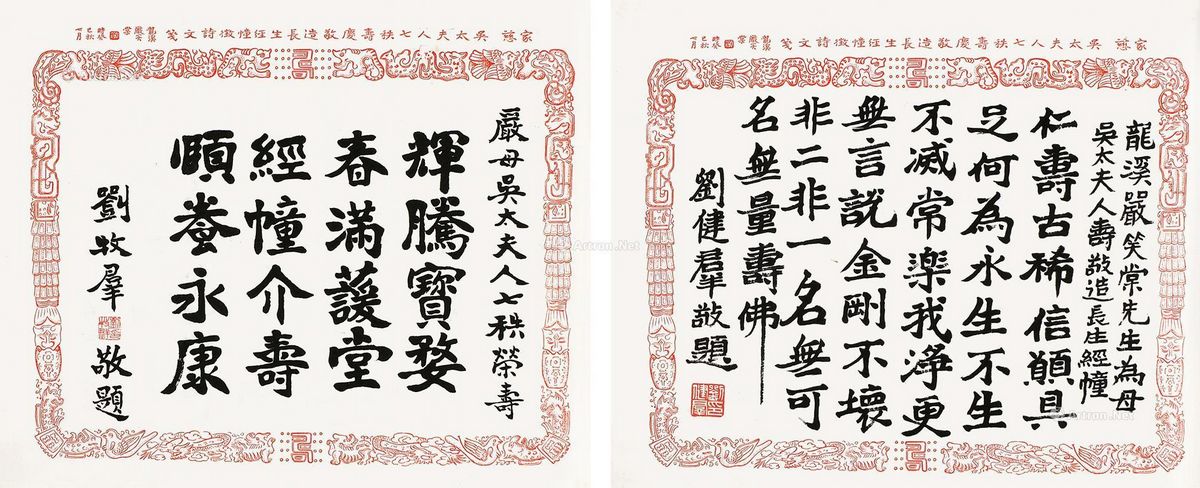 家慈吳太夫人七秩壽慶敬造長生經幢徵詩文箋
嚴母吳太夫人七秩榮壽
輝騰寶婺
春滿蘐堂
經幢介壽
頤養永康
劉牧羣敬題
家慈吳太夫人七秩壽慶敬造長生經幢徵詩文箋
龍溪嚴笑棠先生為母
吳太夫人壽敬造長生經幢
仁壽古稀信願具
足何為永生不生
不滅常樂我淨更
無言說金剛不壞
非二非一名無可
名無量壽佛
劉健羣敬題